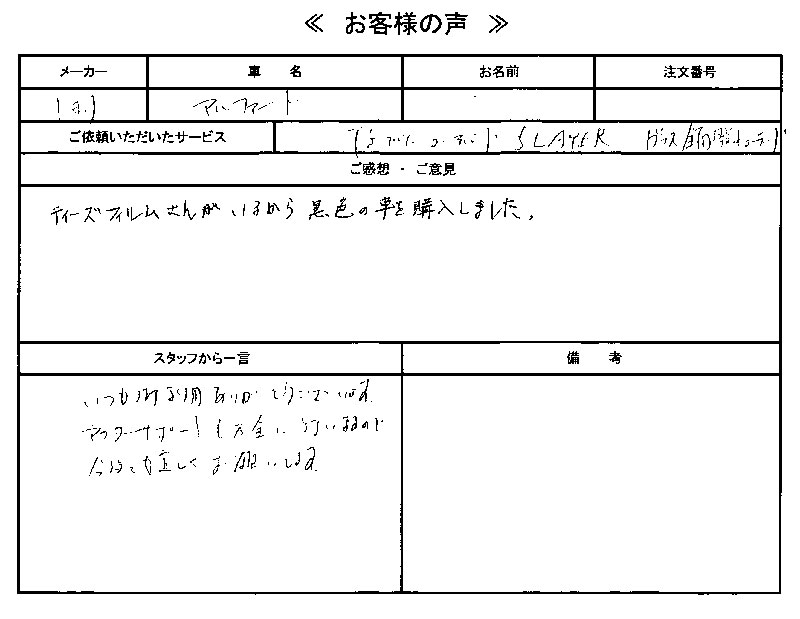 ≪ お客様の声 ≫
メーカー 車 名 お名前 注文番号
トヨタ アルファード
ご依頼いただいたサービス SLAYER ガラス
ご感想・ご意見
ティーズフィルムさんがいるから 黒色の車を購入しました。
スタッフから一言 備 考
いつも御利用ありがとうございます
アフターサポートも万全に行いますので
今後とも宜しくお願いします